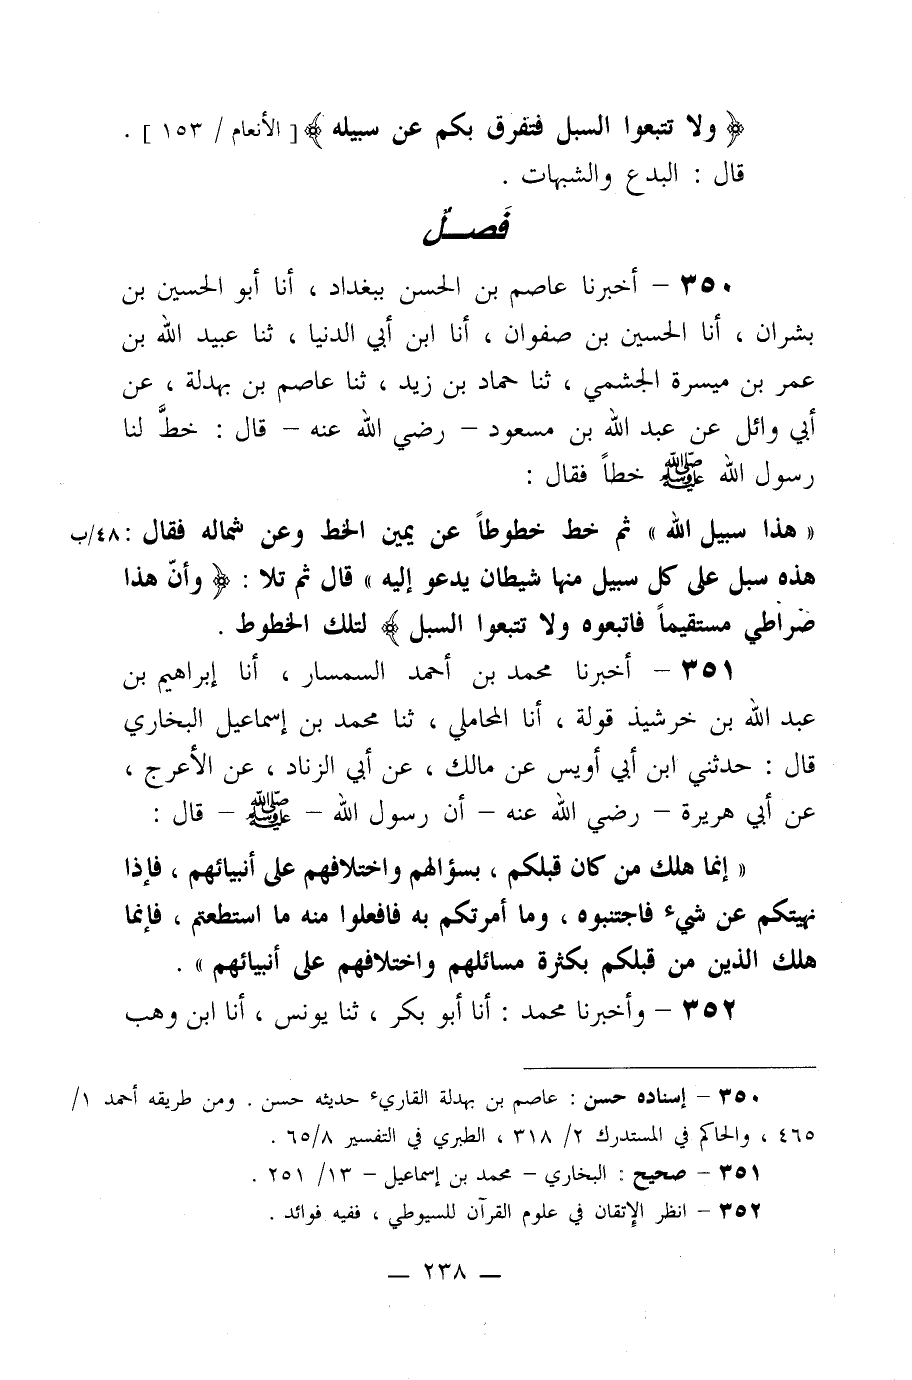 ﴿ ولا تتبعوا السبل فتفرق بكم عن سبيله ﴾ [ الأنعام / ١٥٣ ] .
قال : البدع والشبهات .
فَصـــلٌ
٣٥٠ – أخبرنا عاصم بن الحسن ببغداد ، أنا أبو الحسين بن
بشران ، أنا الحسين بن صفوان ، أنا ابن أبي الدنيا ، ثنا عبيد الله بن
عمر بن ميسرة الجشمي ، ثنا حماد بن زيد ، ثنا عاصم بن بهدلة ، عن
أبي وائل عن عبد الله بن مسعود – رضي الله عنه – قال : خطَّ لنا
رسول الله ﷺ خطاً فقال :
« هذا سبيل الله » ثم خط خطوطاً عن يمين الخط وعن شماله فقال : ٤٨/ب
هذه سبل على كل سبيل منها شيطان يدعو إليه » قال ثم تلا : ﴿ وأنّ هذا
صراطي مستقيماً فاتبعوه ولا تتبعوا السبل ﴾ لتلك الخطوط .
٣٥١ – أخبرنا محمد بن أحمد السمسار ، أنا إبراهيم بن
عبد الله بن خرشيذ قولة ، أنا المحاملي ، ثنا محمد بن إسماعيل البخاري
قال : حدثني ابن أبي أويس عن مالك ، عن أبي الزناد ، عن الأعرج ،
عن أبي هريرة – رضي الله عنه – أن رسول الله – ﷺ – قال :
« إنما هلك من كان قبلكم ، بسؤالهم واختلافهم على أنبيائهم ، فإذا
نهيتكم عن شيء فاجتنبوه ، وما أمرتكم به فافعلوا منه ما استطعتم ، فإنما
هلك الذين من قبلكم بكثرة مسائلهم واختلافهم على أنبيائهم » .
٣٥٢ – وأخبرنا محمد : أنا أبو بكر ، ثنا يونس ، أنا ابن وهب
٣٥٠ – إسناده حسن : عاصم بن بهدلة القاريء حديثه حسن . ومن طريقه أحمد ١/
٤٦٥ ، والحاكم في المستدرك ٢/ ٣١٨ ، الطبري في التفسير ٦٥/٨ .
٣٥١ – صحيح : البخاري – محمد بن إسماعيل – ١٣/ ٢٥١ .
٣٥٢ – انظر الإتقان في علوم القرآن للسيوطي ، ففيه فوائد .
— ٢٣٨ —